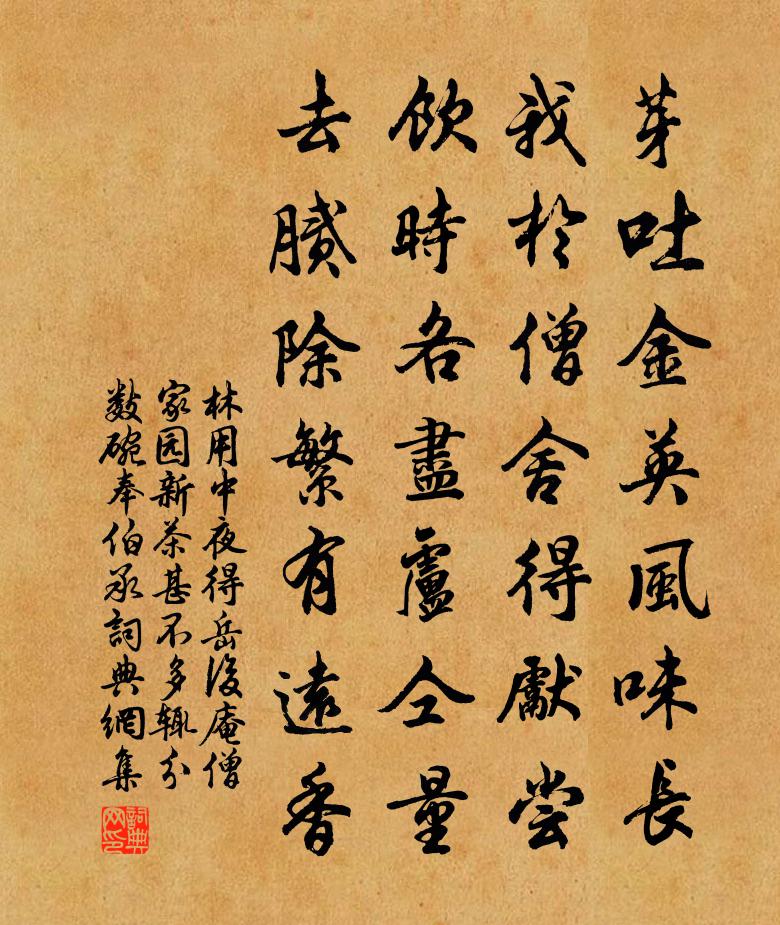 芽吐金英風味長
我於僧舍得獻嘗
飲時各盡盧仝量
去膩除繁有遠香
林用中夜得岳後庵僧
家园新茶甚不多辄分
数碗奉伯承詞典網集
詞典网印